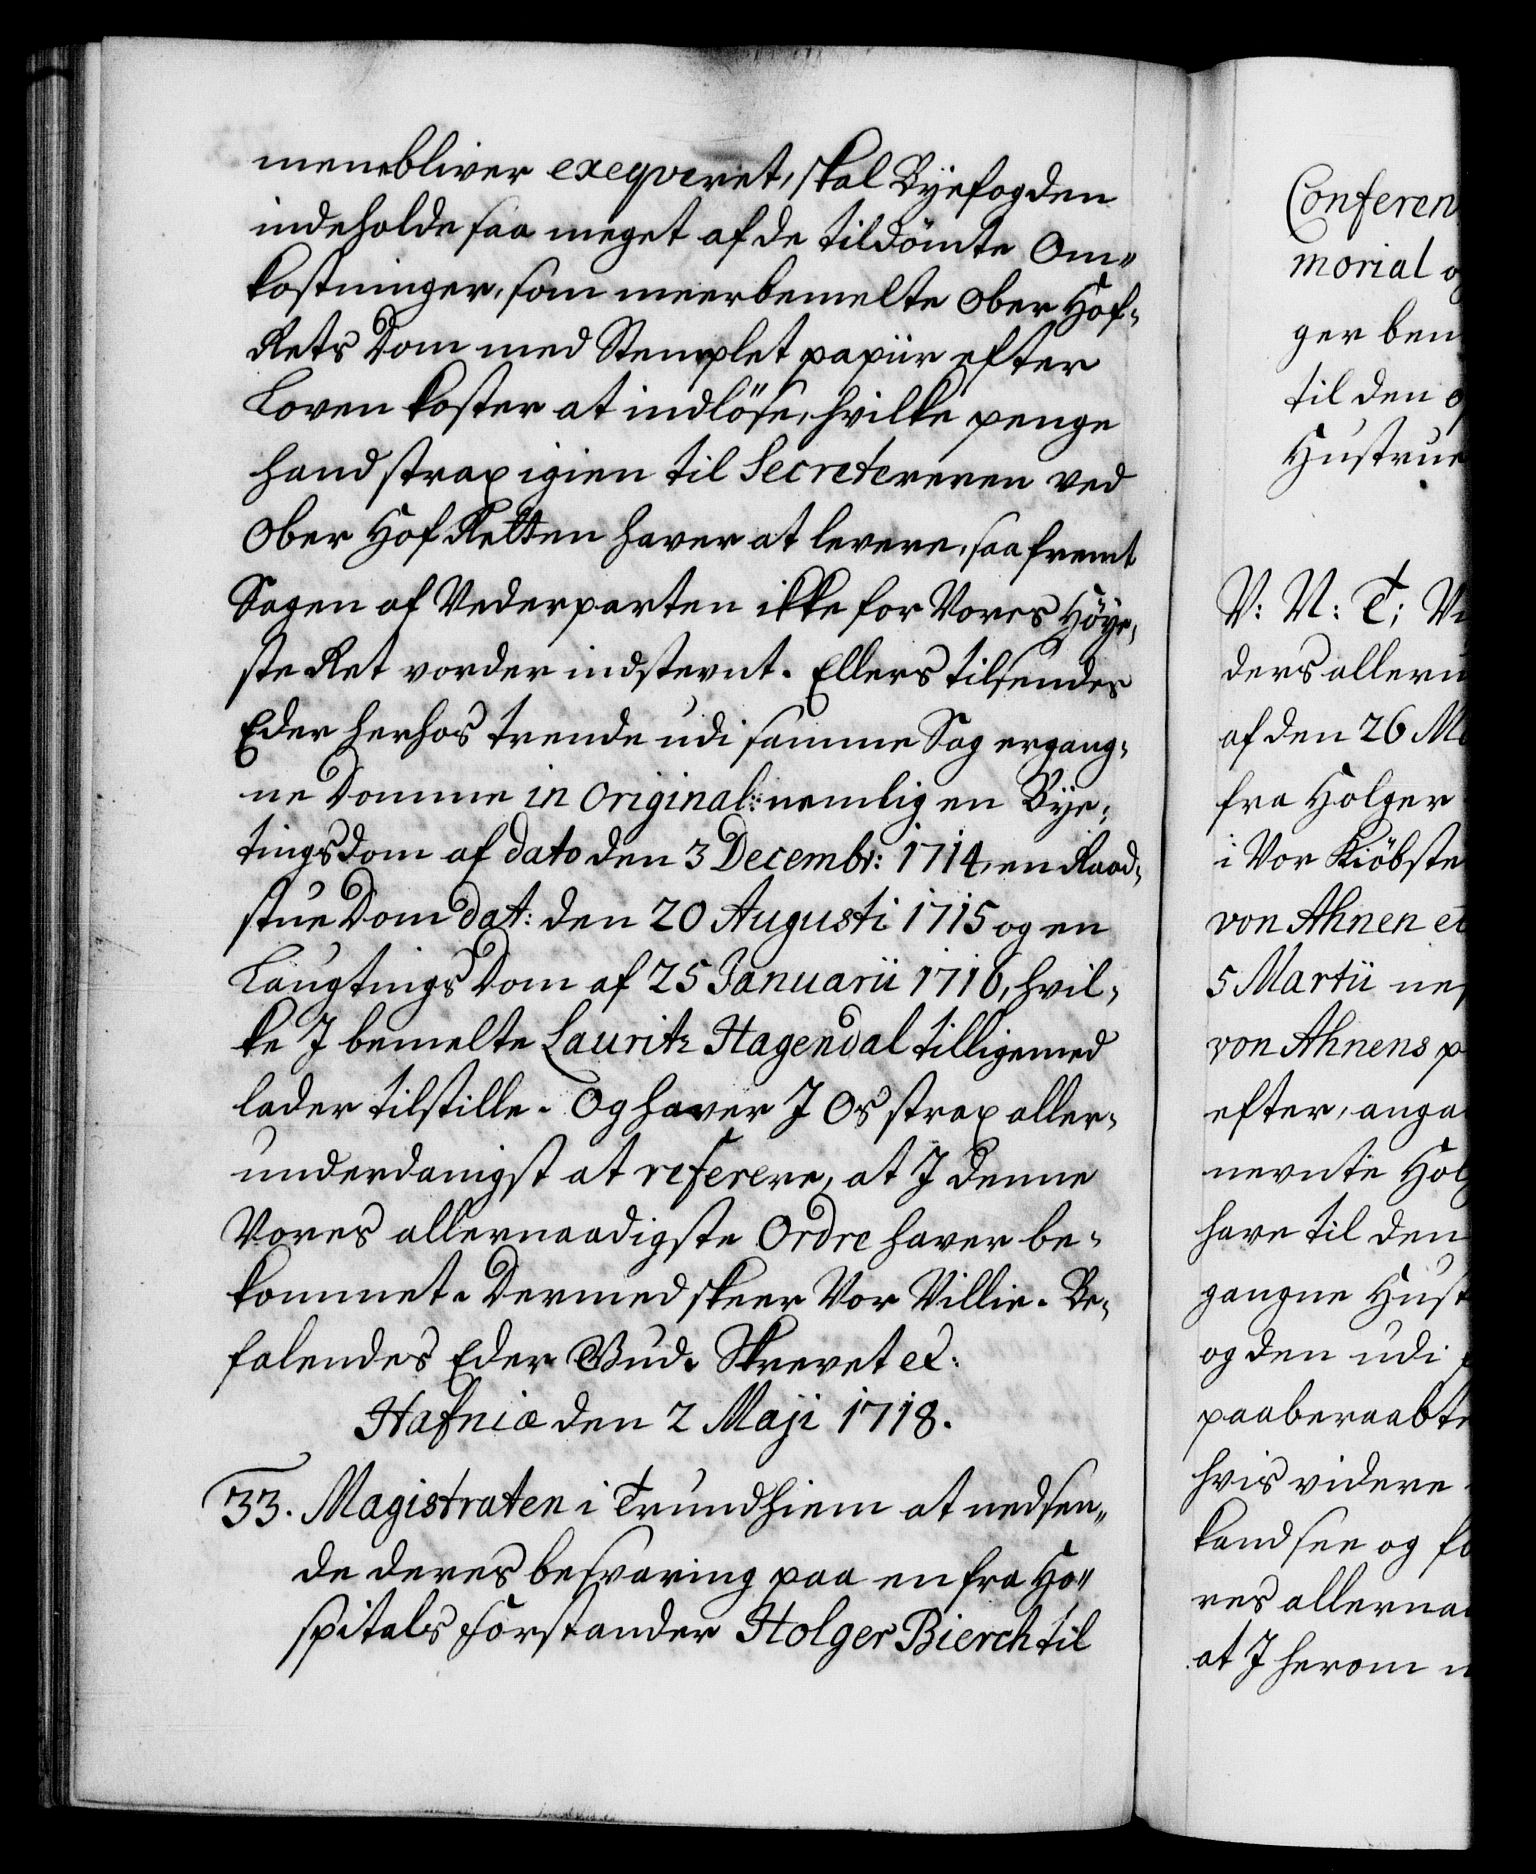 men bliver exeqveret, skal Byefogden
indeholde saa meget af de tildömte Om„
kostninger, som meerbemelte Ober Hof„
Rets Dom med Stemplet papiir efter
Loven koster at indlöse, hvilke penge
hand strax igien til Secretereren ved
Ober Hof Retten haver at levere, saafremt
Sagen af Vederparten ikke for Vores Höye„
ste Ret vorder indstevnt. Ellers tilsendes
Eder herhos trende udi samme Sag ergang„
ne Domme in Original: nemlig en Bye„
tings dom af dato den 3 Decembr: 1714, en Raad„
stue Dom dat: den 20 Augusti 1715 og en
Laugtings Dom af 25 Januarii 1716, hvil„
ke I bemelte Lauritz Hagendal tilligemed
lader tilstille. Og haver I Os strax aller„
underdanigst at referere, at I denne
Vores allernaadigste Ordre haver be„
kommet. Dermed skeer Vor Villie. Be„
falendes Eder Gud. Skrevet etc:
Hafniæ den 2 Maji 1718.
33. Magistraten i Trundhiem at nedsen„
de deres besvaring paa en fra Ho„
spitals Forstander Holger Bierch til
Conferen
morial o
ger ben
til den
Hustrue
V: U: T: Vi
ders alleru
af den 26 M
fra Holger
i Vor Kiöbste
von Ahnen et
5 Martii nes
von Ahnens p
efter, anga
nevnte Holg
have til den
gangne Hust
og den udi
paaberaabte
hvis videre
kand see og fo
res allernaa
at I herom